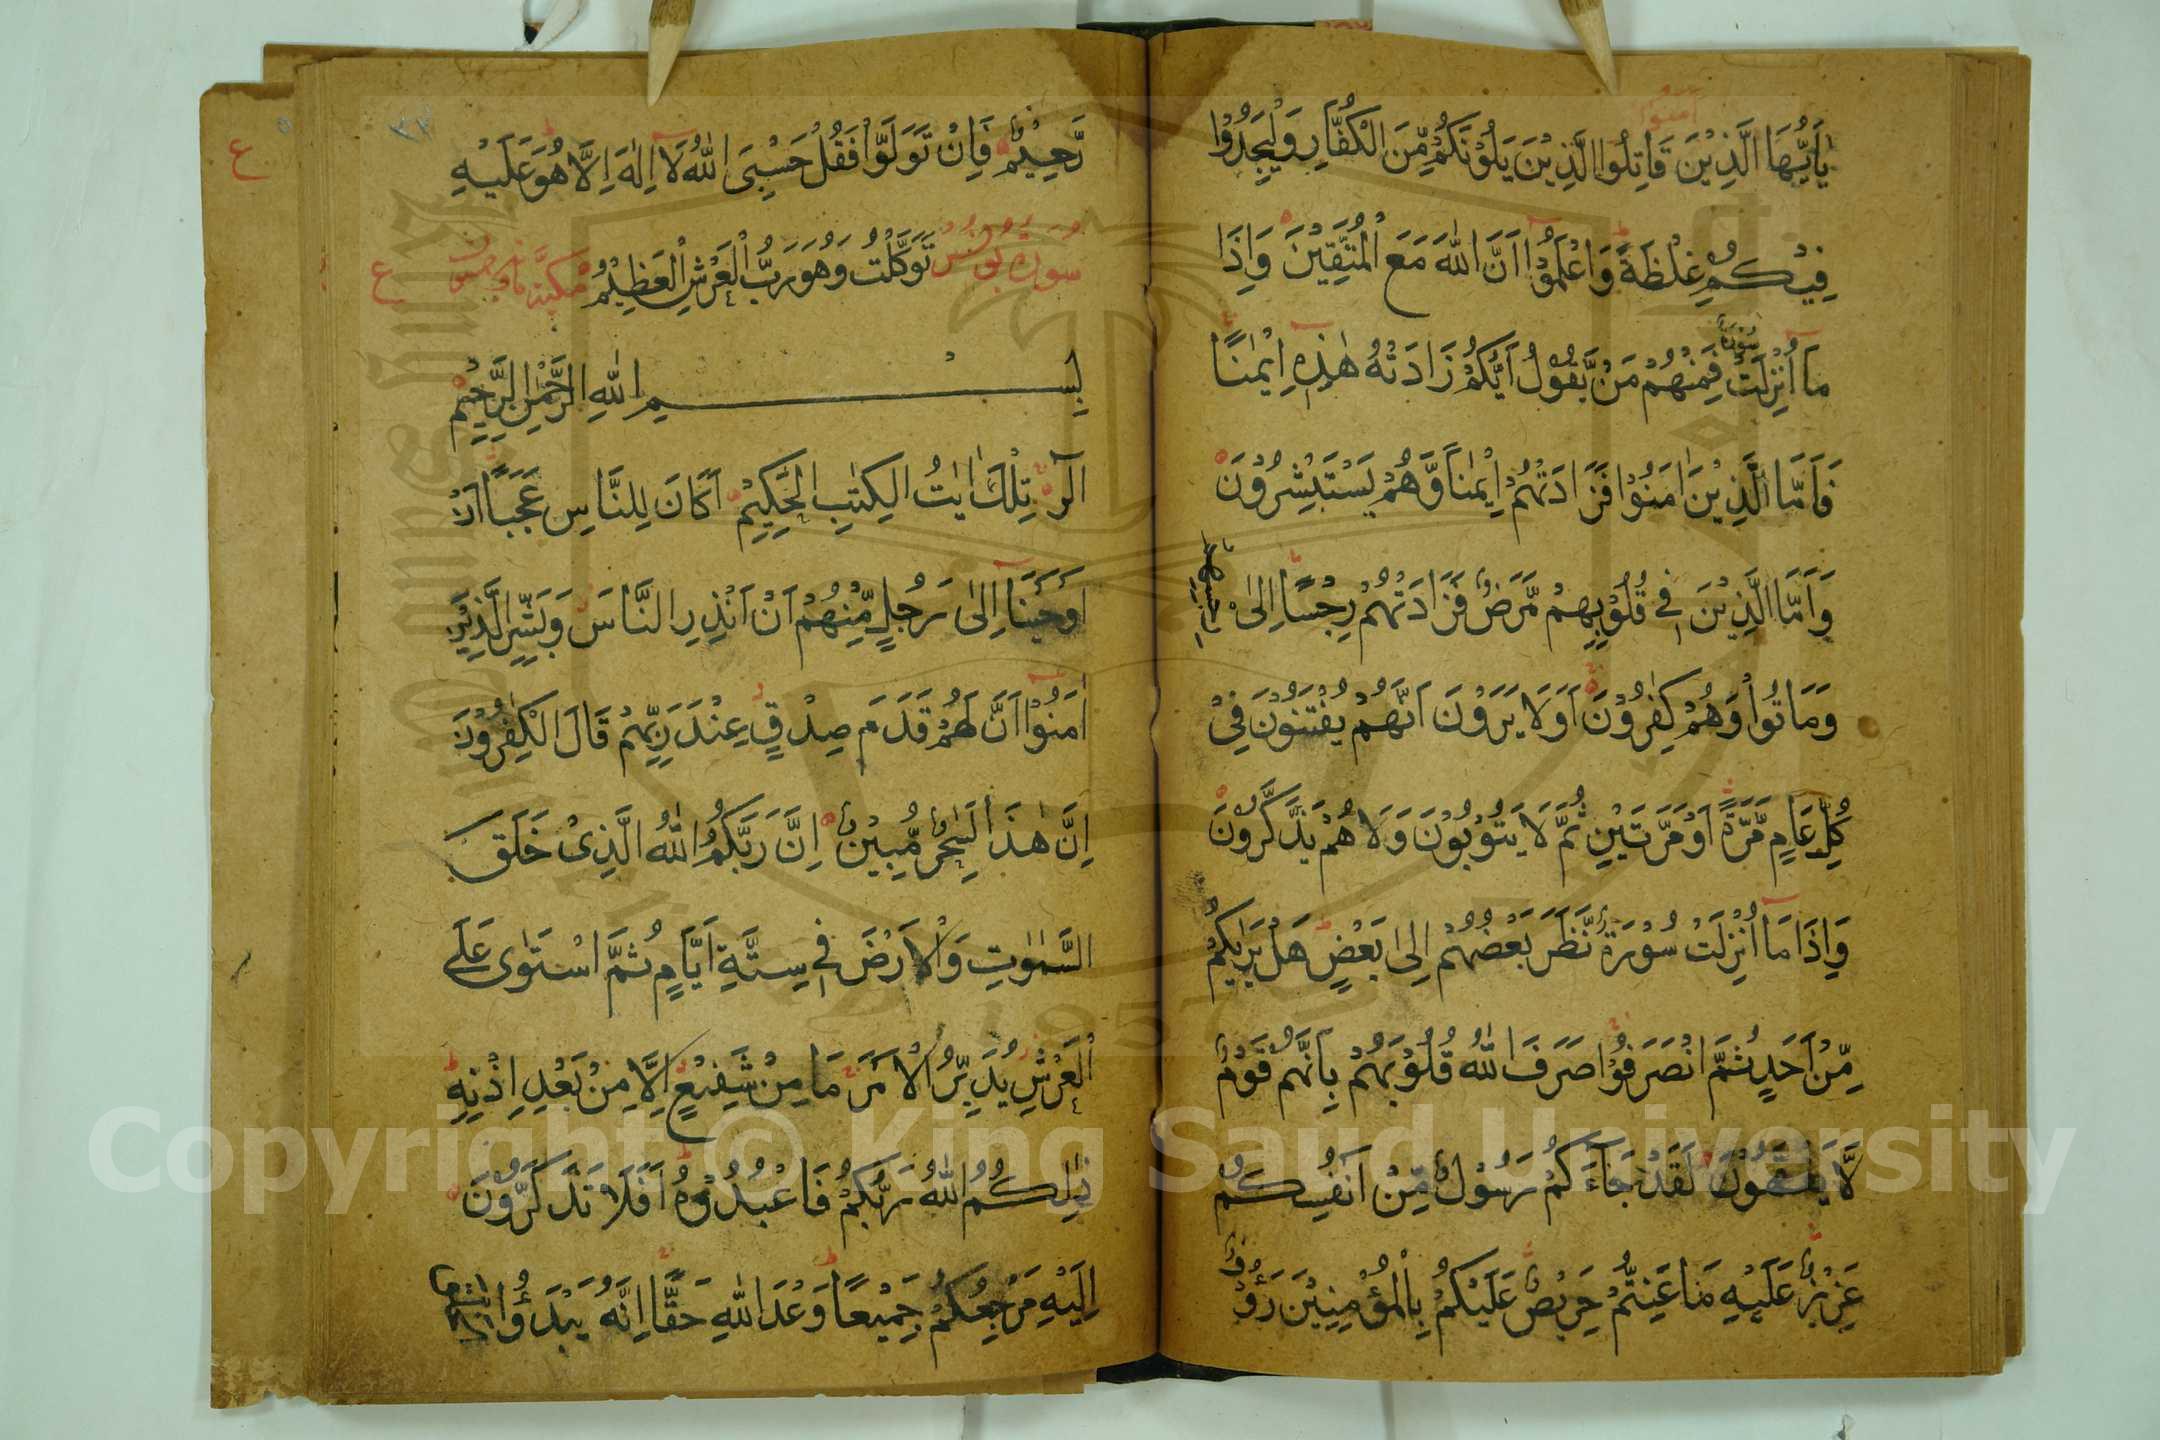 اٰمَنُوْا
يٰاَيُّهَا الَّذِيْنَ قَاتِلُوا الَّذِيْنَ يَلُوْنَكُمْ مِّنَ الْكُفَّارِ وَلْيَجِدُوْا
فِيْكُمْ غِلْظَةً وَاعْلَمُوْا اَنَّ اللّٰهَ مَعَ الْمُتَّقِيْنَ وَاِذَا
سُوْرَةٌ
مَا اُنْزِلَتْ فَمِنْهُمْ مَنْ يَّقُوْلُ اَيُّكُمْ زَادَتْهُ هٰذِهِ اِيْمٰنًا
فَاَمَّا الَّذِيْنَ اٰمَنُوْا فَزَادَتْهُمْ اِيْمٰنًا وَّهُمْ يَسْتَبْشِرُوْنَ
وَاَمَّا الَّذِيْنَ فِيْ قُلُوْبِهِمْ مَّرَضٌ فَزَادَتْهُمْ رِجْسًا اِلٰى رِجْسِهِمْ
وَمَاتُوْا وَهُمْ كٰفِرُوْنَ اَوَلَا يَرَوْنَ اَنَّهُمْ يُفْتَنُوْنَ فِيْ
كُلِّ عَامٍ مَّرَّةً اَوْ مَرَّتَيْنِ ثُمَّ لَا يَتُوْبُوْنَ وَلَا هُمْ يَذَّكَّرُوْنَ
وَاِذَا مَا اُنْزِلَتْ سُوْرَةٌ نَّظَرَ بَعْضُهُمْ اِلٰى بَعْضٍ هَلْ يَرٰىكُمْ
مِّنْ اَحَدٍ ثُمَّ انْصَرَفُوْا صَرَفَ اللّٰهُ قُلُوْبَهُمْ بِاَنَّهُمْ قَوْمٌ
لَّا يَفْقَهُوْنَ لَقَدْ جَاءَكُمْ رَسُوْلٌ مِّنْ اَنْفُسِكُمْ
عَزِيْزٌ عَلَيْهِ مَا عَنِتُّمْ حَرِيْصٌ عَلَيْكُمْ بِالْمُؤْمِنِيْنَ رَؤُفٌ
رَّحِيْمٌ فَاِنْ تَوَلَّوْا فَقُلْ حَسْبِىَ اللّٰهُ لَا اِلٰهَ اِلَّا هُوَ عَلَيْهِ
سُوْرَةُ يُوْنُسَ تَوَكَّلْتُ وَهُوَ رَبُّ الْعَرْشِ الْعَظِيْمِ مَكِّيَّة ع
بِسْمِ اللّٰهِ الرَّحْمٰنِ الرَّحِيْمِ
الٓرٰ تِلْكَ اٰيٰتُ الْكِتٰبِ الْحَكِيْمِ اَكَانَ لِلنَّاسِ عَجَبًا اَنْ
اَوْحَيْنَا اِلٰى رَجُلٍ مِّنْهُمْ اَنْ اَنْذِرِ النَّاسَ وَبَشِّرِ الَّذِيْنَ
اٰمَنُوْا اَنَّ لَهُمْ قَدَمَ صِدْقٍ عِنْدَ رَبِّهِمْ قَالَ الْكٰفِرُوْنَ
اِنَّ هٰذَا لَسٰحِرٌ مُّبِيْنٌ اِنَّ رَبَّكُمُ اللّٰهُ الَّذِىْ خَلَقَ
السَّمٰوٰتِ وَالْاَرْضَ فِيْ سِتَّةِ اَيَّامٍ ثُمَّ اسْتَوٰى عَلَى
الْعَرْشِ يُدَبِّرُ الْاَمْرَ مَا مِنْ شَفِيْعٍ اِلَّا مِنْ بَعْدِ اِذْنِهِ
ذٰلِكُمُ اللّٰهُ رَبُّكُمْ فَاعْبُدُوْهُ اَفَلَا تَذَكَّرُوْنَ
اِلَيْهِ مَرْجِعُكُمْ جَمِيْعًا وَعْدَ اللّٰهِ حَقًّا اِنَّهُ يَبْدَؤُا
ع
Copyright © King Saud University
1957